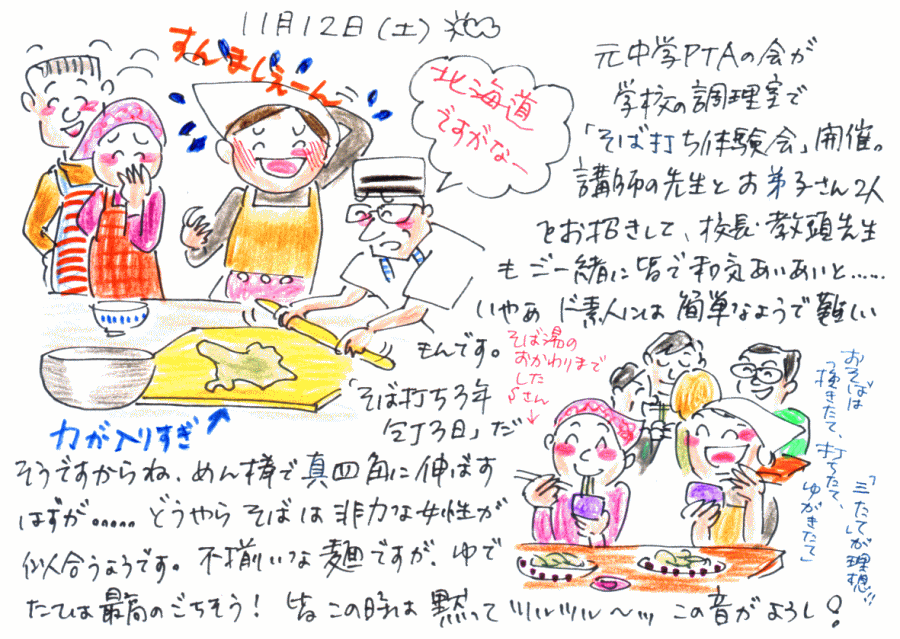 11月12日(土)
すんましぇーん
北海道
ですがなー
元中学PTAの会が
学校の調理室で
「そば打ち体験会」開催。
講師の先生とお弟子さん2人
をお招きして、校長・教頭先生
もご一緒に皆で和気あいあいと……
いやぁ ド素人には簡単なようで難しい
もんです。
「そば打ち3年
包丁3日」だ
力が入りすぎ
そば湯の
おかわりまで
した
Sさん
↓
おそばは
「挽きたて、打ちたて、
ゆがきたて」
「三たて」が理想!!
そうですからね、めん棒で真四角に伸ばす
はずが…… どうやら そばは非力な女性が
似合うようです。不揃いな麺ですが、ゆで
たては最高のごちそう! 皆この時は黙ってツルツル〜ッ この音がよろし!